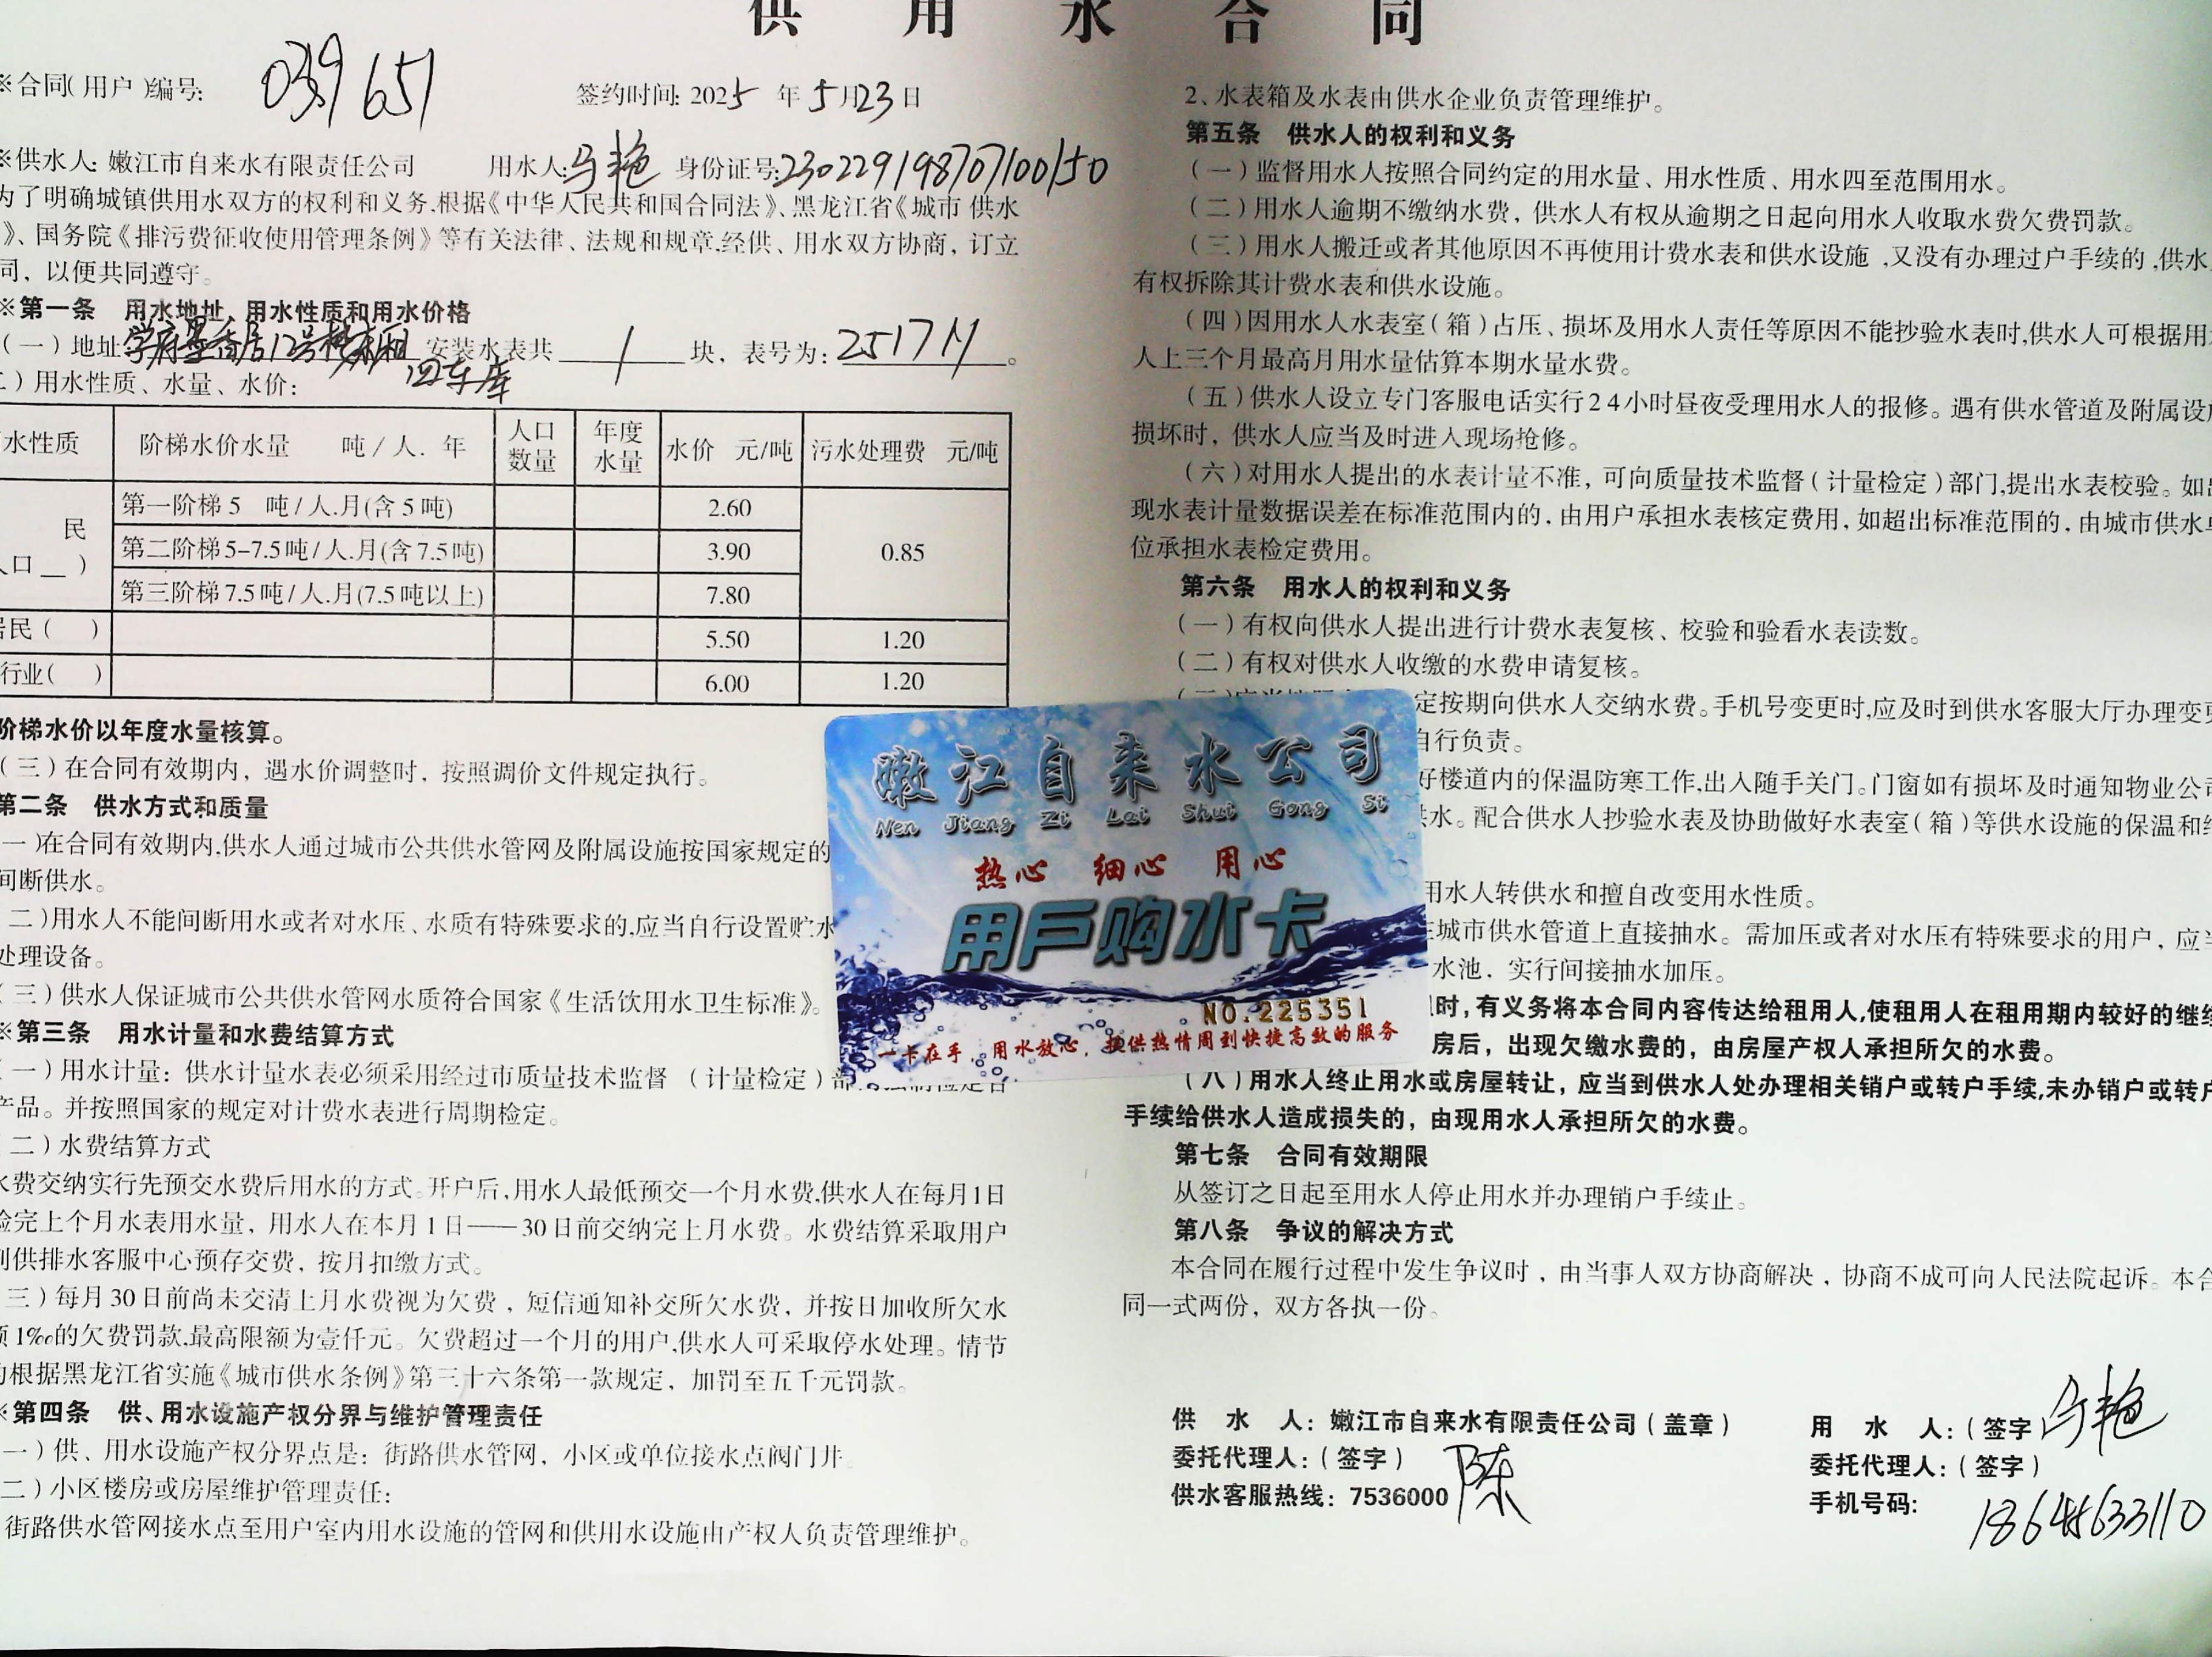 供 用 水 合 同
※合同(用户)编号: 039651
签约时间: 2025 年 5 月 23 日
※供水人: 嫩江市自来水有限责任公司 用水人: 马艳 身份证号: 230229198707100150
为了明确城镇供用水双方的权利和义务,根据《中华人民共和国合同法》、黑龙江省《城市 供水
》、国务院《排污费征收使用管理条例》等有关法律、法规和规章,经供、用水双方协商, 订立
同, 以便共同遵守。
※第一条 用水地址、用水性质和用水价格
(一)地址: 学府 香居12号楼 安装水表共 1 块, 表号为: 2517
四车库
二)用水性质、水量、水价:
水性质 阶梯水价水量 吨/人. 年 人口数量 年度水量 水价 元/吨 污水处理费 元/吨
民 第一阶梯 5 吨/人.月(含 5 吨) 2.60
第二阶梯 5-7.5 吨/人.月(含 7.5 吨) 3.90 0.85
人口__ )
第三阶梯 7.5 吨/人.月(7.5 吨以上) 7.80
居民( ) 5.50 1.20
行业( ) 6.00 1.20
阶梯水价以年度水量核算。
(三)在合同有效期内, 遇水价调整时, 按照调价文件规定执行。
第二条 供水方式和质量
一)在合同有效期内,供水人通过城市公共供水管网及附属设施按国家规定的
间断供水。
二)用水人不能间断用水或者对水压、水质有特殊要求的,应当自行设置贮水
处理设备。
(三)供水人保证城市公共供水管网水质符合国家《生活饮用水卫生标准》。
※第三条 用水计量和水费结算方式
(一)用水计量: 供水计量水表必须采用经过市质量技术监督 (计量检定)部
产品。并按照国家的规定对计费水表进行周期检定。
二)水费结算方式
水费交纳实行先预交水费后用水的方式。开户后,用水人最低预交一个月水费,供水人在每月1日
验完上个月水表用水量, 用水人在本月 1 日——30 日前交纳完上月水费。水费结算采取用户
到供排水客服中心预存交费, 按月扣缴方式。
三)每月 30 日前尚未交清上月水费视为欠费, 短信通知补交所欠水费, 并按日加收所欠水
额 1‰的欠费罚款,最高限额为壹仟元。欠费超过一个月的用户,供水人可采取停水处理。情节
的根据黑龙江省实施《城市供水条例》第三十六条第一款规定, 加罚至五千元罚款。
※第四条 供、用水设施产权分界与维护管理责任
一)供、用水设施产权分界点是: 街路供水管网, 小区或单位接水点阀门井
二)小区楼房或房屋维护管理责任:
街路供水管网接水点至用户室内用水设施的管网和供用水设施由产权人负责管理维护。
2、水表箱及水表由供水企业负责管理维护。
第五条 供水人的权利和义务
(一)监督用水人按照合同约定的用水量、用水性质、用水四至范围用水。
(二)用水人逾期不缴纳水费, 供水人有权从逾期之日起向用水人收取水费欠费罚款。
(三)用水人搬迁或者其他原因不再使用计费水表和供水设施 ,又没有办理过户手续的,供水
有权拆除其计费水表和供水设施。
(四)因用水人水表室(箱)占压、损坏及用水人责任等原因不能抄验水表时,供水人可根据用
人上三个月最高月用水量估算本期水量水费。
(五)供水人设立专门客服电话实行24小时昼夜受理用水人的报修。遇有供水管道及附属设
损坏时, 供水人应当及时进入现场抢修。
(六)对用水人提出的水表计量不准, 可向质量技术监督(计量检定)部门,提出水表校验。如
现水表计量数据误差在标准范围内的, 由用户承担水表核定费用, 如超出标准范围的, 由城市供水
位承担水表检定费用。
第六条 用水人的权利和义务
(一)有权向供水人提出进行计费水表复核、校验和验看水表读数。
(二)有权对供水人收缴的水费申请复核。
定按期向供水人交纳水费。手机号变更时,应及时到供水客服大厅办理变更
自行负责。
好楼道内的保温防寒工作,出入随手关门。门窗如有损坏及时通知物业公司
供水。配合供水人抄验水表及协助做好水表室(箱)等供水设施的保温和
用水人转供水和擅自改变用水性质。
在城市供水管道上直接抽水。需加压或者对水压有特殊要求的用户, 应当
水池, 实行间接抽水加压。
时, 有义务将本合同内容传达给租用人,使租用人在租用期内较好的继续
房后, 出现欠缴水费的, 由房屋产权人承担所欠的水费。
(八)用水人终止用水或房屋转让, 应当到供水人处办理相关销户或转户手续,未办销户或转户
手续给供水人造成损失的, 由现用水人承担所欠的水费。
第七条 合同有效期限
从签订之日起至用水人停止用水并办理销户手续止。
第八条 争议的解决方式
本合同在履行过程中发生争议时, 由当事人双方协商解决, 协商不成可向人民法院起诉。本合
同一式两份, 双方各执一份。
供 水 人: 嫩江市自来水有限责任公司(盖章)
委托代理人:(签字) 陈
供水客服热线: 7536000
用 水 人:(签字 马艳
委托代理人:(签字)
手机号码: 18645633110
嫩江自来水公司
Nen Jiang Zi Lai Shui Gong Si
热心 细心 用心
用户购水卡
NO.225351
一卡在手,用水放心,提供热情周到快捷高效的服务